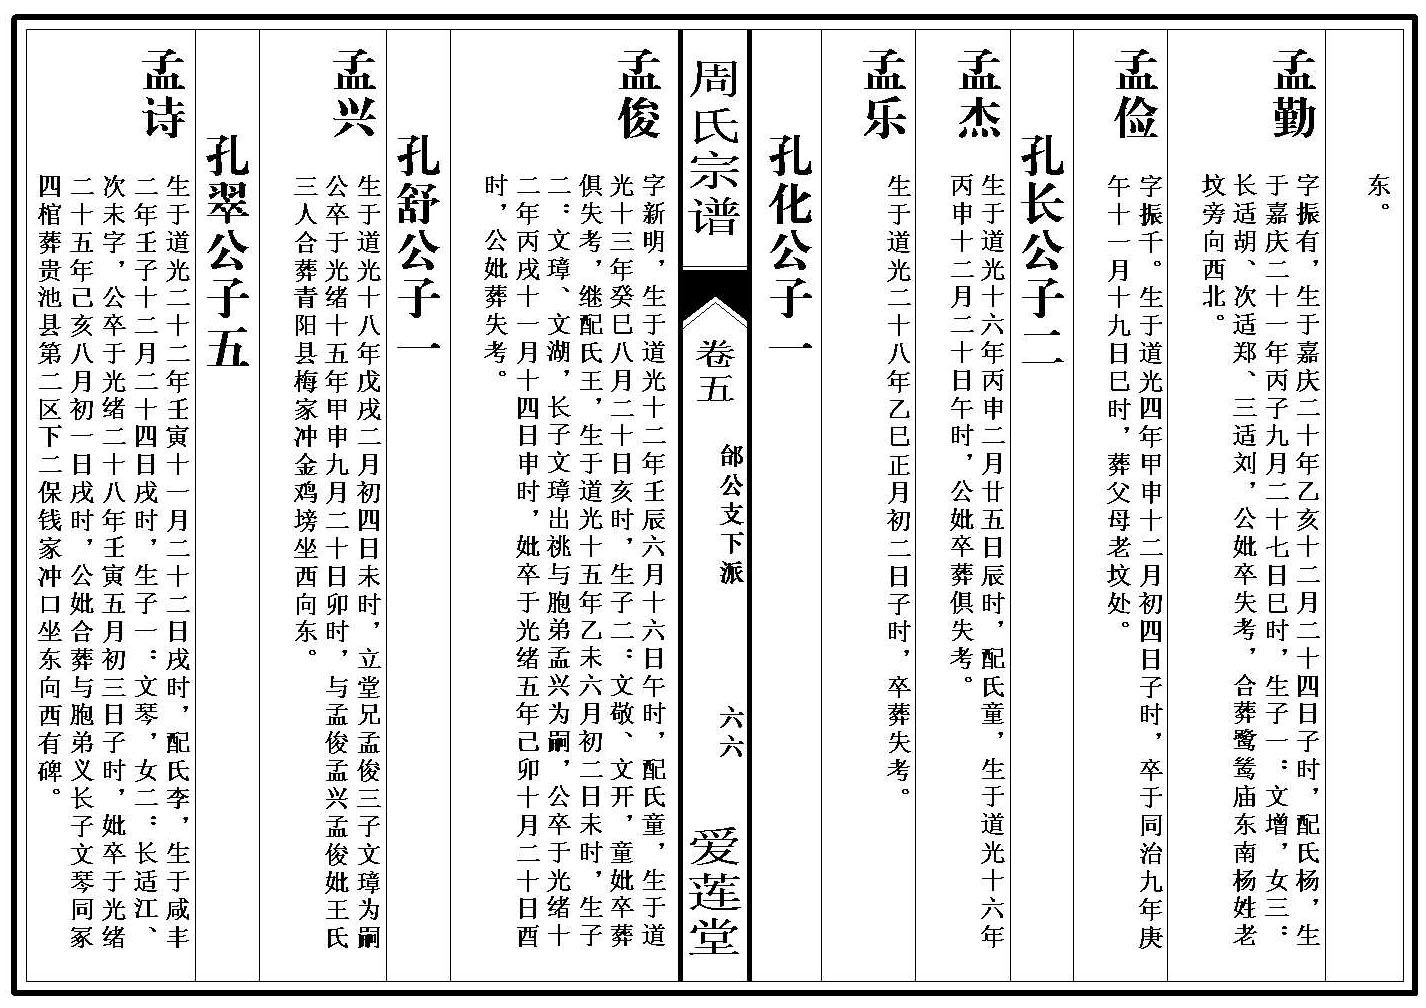 东。
孟勤
字振有，生于嘉庆二十年乙亥十二月二十四日子时，配氏杨，生
于嘉庆二十一年丙子九月二十七日巳时，生子一：文增，女三：
长适胡、次适郑、三适刘，公妣卒失考，合葬鹭鸶庙东南杨姓老
坟旁向西北。
孟俭
字振千。生于道光四年甲申十二月初四日子时，卒于同治九年庚
午十一月十九日巳时，葬父母老坟处。
孔长公子二
孟杰
生于道光十六年丙申二月廿五日辰时，配氏童，生于道光十六年
丙申十二月二十日午时，公妣卒葬俱失考。
孟乐
生于道光二十八年乙巳正月初二日子时，卒葬失考。
孔化公子一
周氏宗谱
卷五
邰公支下派
六六
爱莲堂
孟俊
字新明，生于道光十二年壬辰六月十六日午时，配氏童，生于道
光十三年癸巳八月二十日亥时，生子二：文敬、文开，童妣卒葬
俱失考，继配氏王，生于道光十五年乙未六月初二日未时，生子
二：文璋、文湖，长子文璋出祧与胞弟孟兴为嗣，公卒于光绪十
二年丙戌十一月十四日申时，妣卒于光绪五年己卯十月二十日酉
时，公妣葬失考。
孔舒公子一
孟兴
生于道光十八年戊戌二月初四日未时，立堂兄孟俊三子文璋为嗣
公卒于光绪十五年甲申九月二十日卯时，与孟俊孟兴孟俊妣王氏
三人合葬青阳县梅家冲金鸡塝坐西向东。
孔翠公子五
孟诗
生于道光二十二年壬寅十一月二十二日戌时，配氏李，生于咸丰
二年壬子十二月二十四日戌时，生子一：文琴，女二：长适江、
次未字，公卒于光绪二十八年壬寅五月初三日子时，妣卒于光绪
二十五年己亥八月初一日戌时，公妣合葬与胞弟义长子文琴同冢
四棺葬贵池县第二区下二保钱家冲口坐东向西有碑。